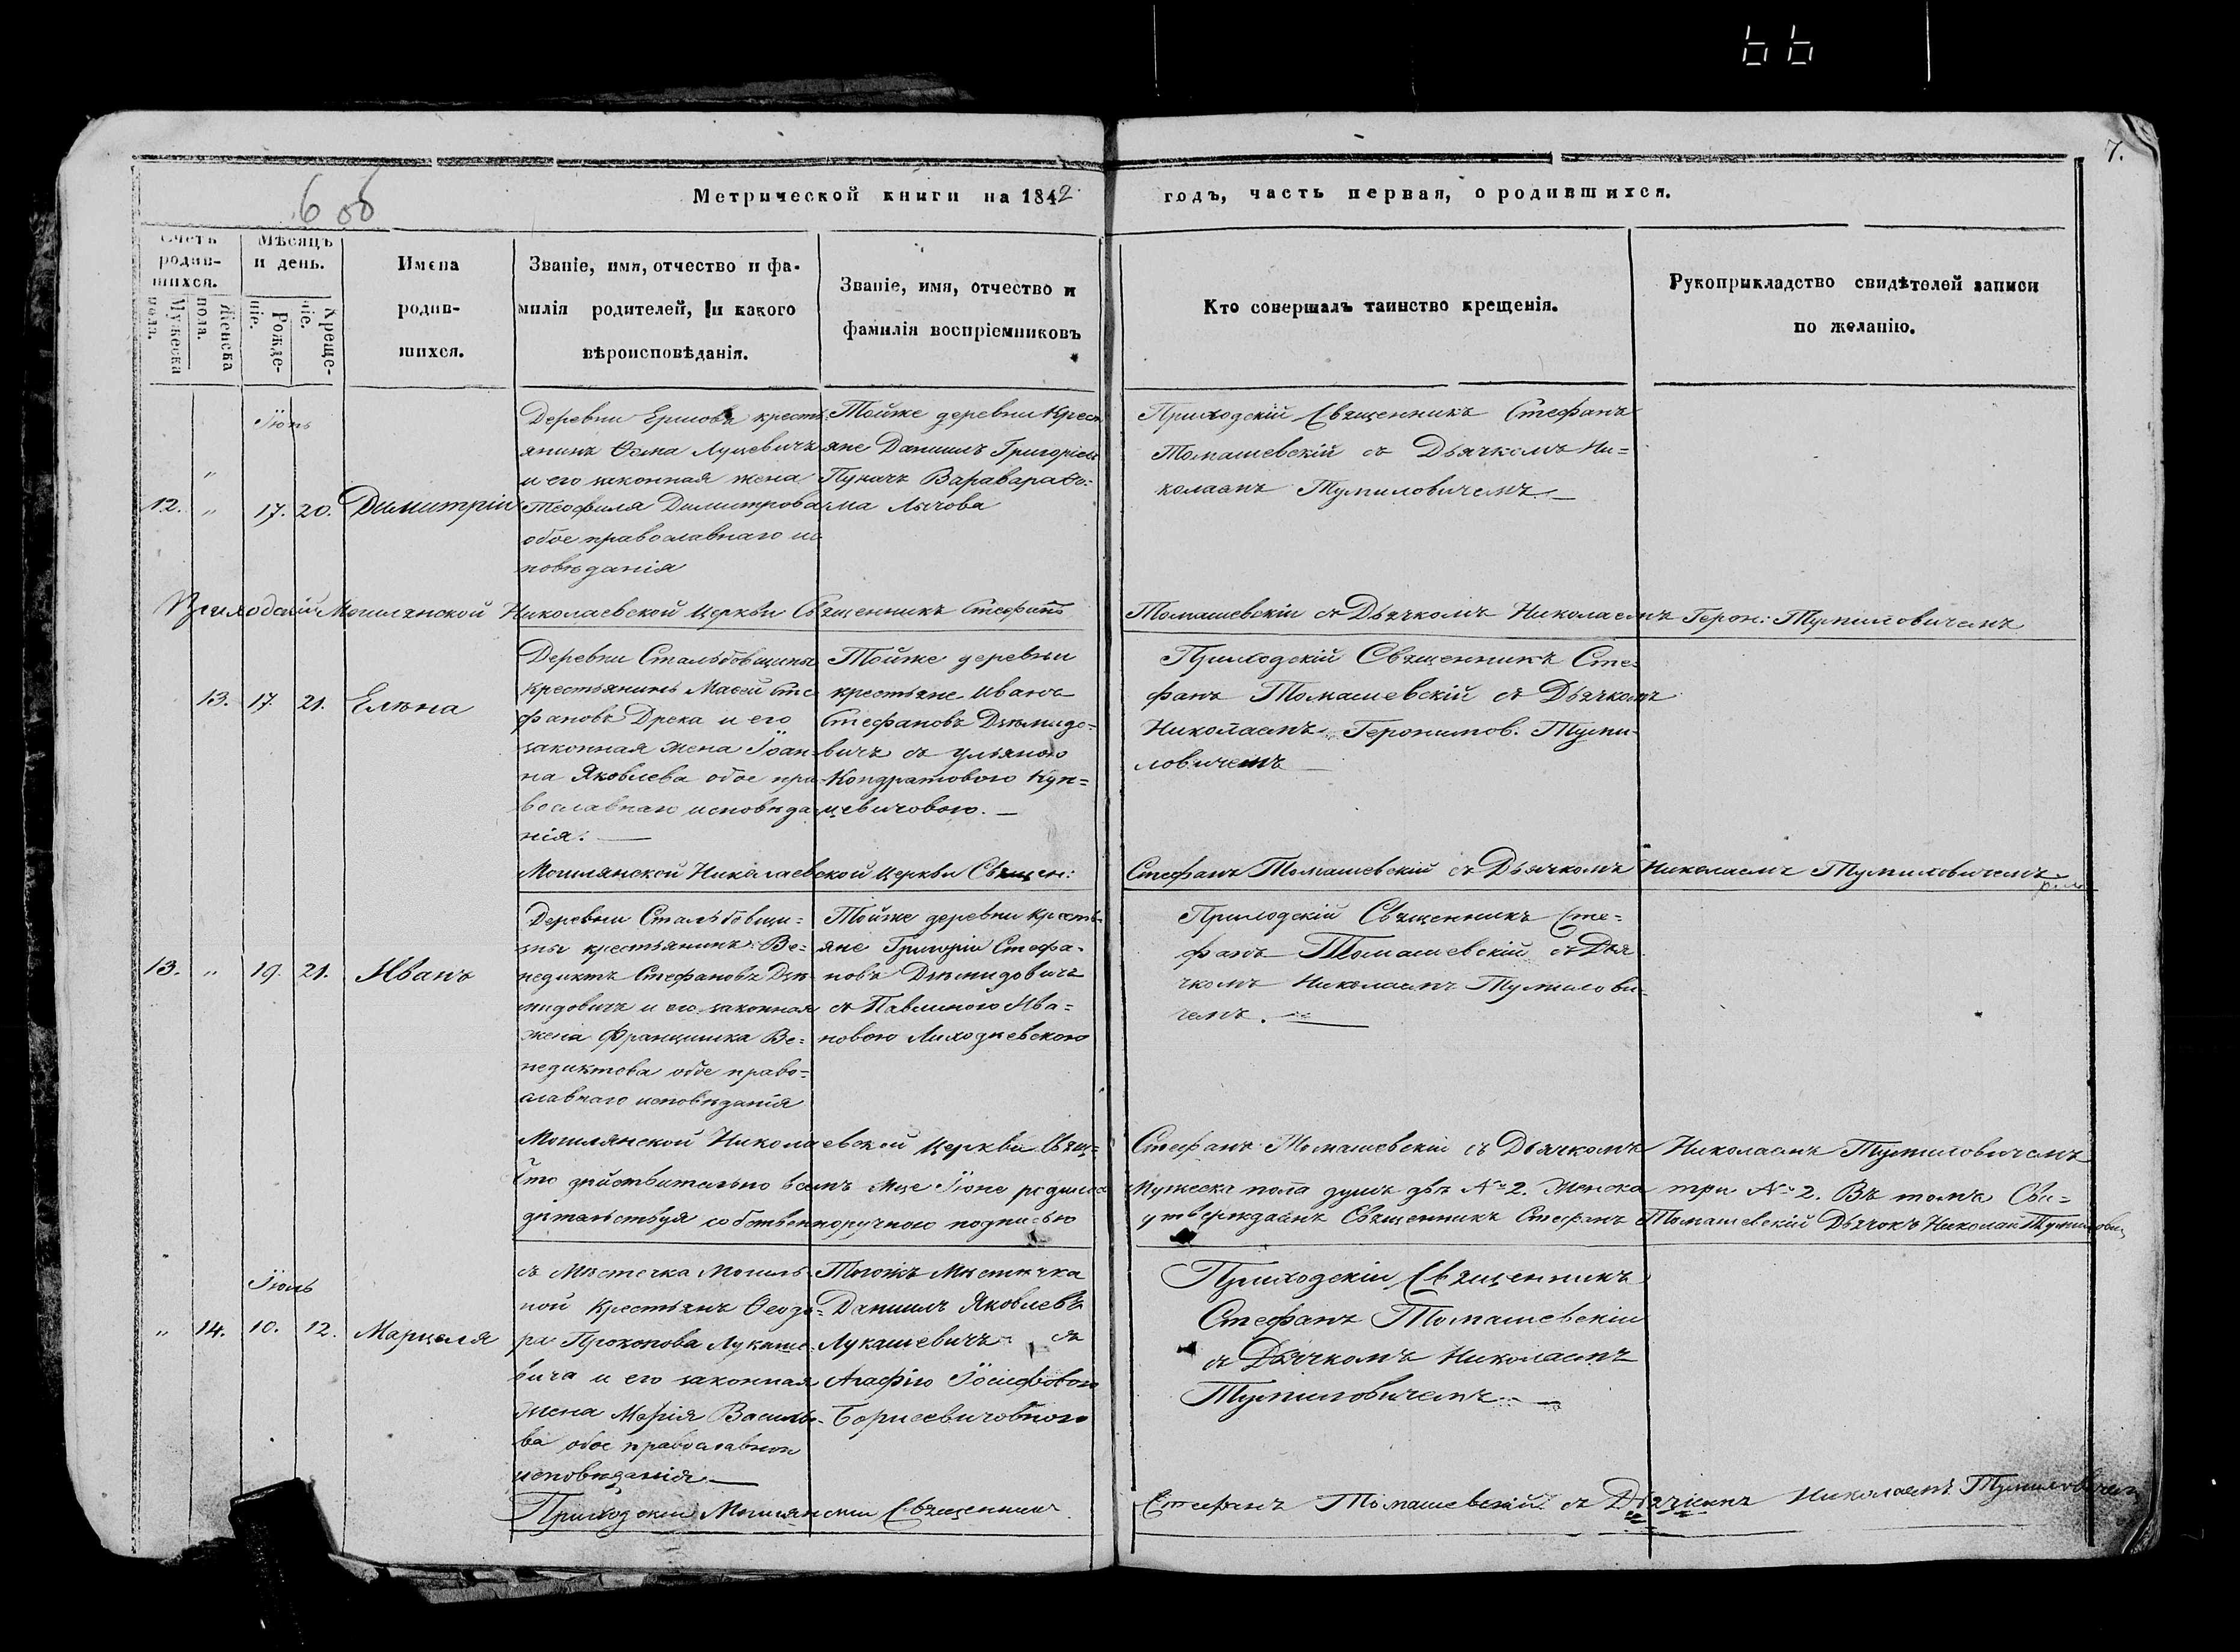 66
7.
6 об
Метрической книги на 1842 годъ, часть первая, о родившихся.
Счетъ родив-
шихся.
Мужеска пола.
Женска пола.
Мѣсяцъ и день.
Рожде-
ніе.
Креще-
ніе.
Имена
родив-
шихся.
Званіе, имя, отчество и фа-
милія родителей, и какого
вѣроисповѣданія.
Званіе, имя, отчество и
фамилія воспріемниковъ
Кто совершалъ таинство крещенія.
Рукоприкладство свидѣтелей записи
по желанію.
Іюнь
12. " 17. 20. Димитрій
Деревни Ермовъ кресть
янинъ Ѳома Луцевичъ
и его законная жена
Теофиля Димитрова
обое православнаго ис
повѣданія
Тойже деревни Крест
яне Даніилъ Григоріевъ
Пукачъ Варавара Ѳо-
ма Лычова
Приходскій Священникъ Стефанъ
Томашевскій съ Дьячкомъ Ни=
колаемъ Тумиловичемъ
Приходскій Могилянской Николаевской Церкви Священникъ Стефанъ Томашевскій съ Дьячкомъ Николаемъ Герон: Тумиловичемъ
13. 17. 21. Елѣна
Деревни Стальбовщины
крестьянинъ Масей Сте
фановъ Дрека и его
законная жена Іоан-
на Яковлева обое пра
вославнаго исповѣда
нія.
Тойже деревни
крестьяне Иванъ
Стефановъ Дѣмидо=
вичъ съ Ульяною
Кондратовою Кун=
цевичовою.
Приходскій Священникъ Сте-
фанъ Томашевскій съ Дьячкомъ
Николаемъ Геронимов. Туми-
ловичемъ
Могилянской Николаевской Церкви Священ: Стефанъ Томашевскій съ Дьячкомъ Николаемъ Тумиловичемъ
13. " 19. 21. Иванъ
Деревни Стальбовщи=
ны крестьянинъ Ве=
недиктъ Стефановъ Дѣ
мидовичъ и его законная
жена Францишка Ве=
недиктова обое право=
славнаго исповѣданія
Тойже деревни кресть-
яне Григорій Стефа-
новъ Дѣмидовичъ
съ Павлиною Ива=
новою Лиходіевскою
Приходскій Священникъ Сте=
фанъ Томашевскій съ Дья
чкомъ Николаемъ Тумилови-
чемъ.
Могилянской Николаевской Церкви Свящ- Стефанъ Томашевскій съ Дьячкомъ Николаемъ Тумиловичемъ
Что дѣйствительно всемъ Мце Іюне родилось Мужеска пола душъ двѣ № 2. Женска три № 2. Въ томъ Сви=
дѣтельствуя собственноручною подписью утверждаемъ Священникъ Стефанъ Томашевскій Дьячокъ Николай Тумилович
Іюль
" 14. 10. 12. Марцеля
съ Мѣстечка Могиль-
ной Крестьянъ Ѳеодо=
ра Прокопова Лукаше
вича и его законная
жена Марія Василь-
ва обое православнаго
исповѣданія
Тогожъ Мѣстечка
Даніилъ Яковлевъ
Лукашевичъ съ
Агафіею Іосифовою
Борисевичовною
Приходскій Священникъ
Стефанъ Томашевскій
съ Дьячкомъ Николаемъ
Тумиловичемъ
Приходскій Могилянскій Священникъ Стефанъ Томашевскій съ Дьячкомъ Николаемъ Тумиловичемъ